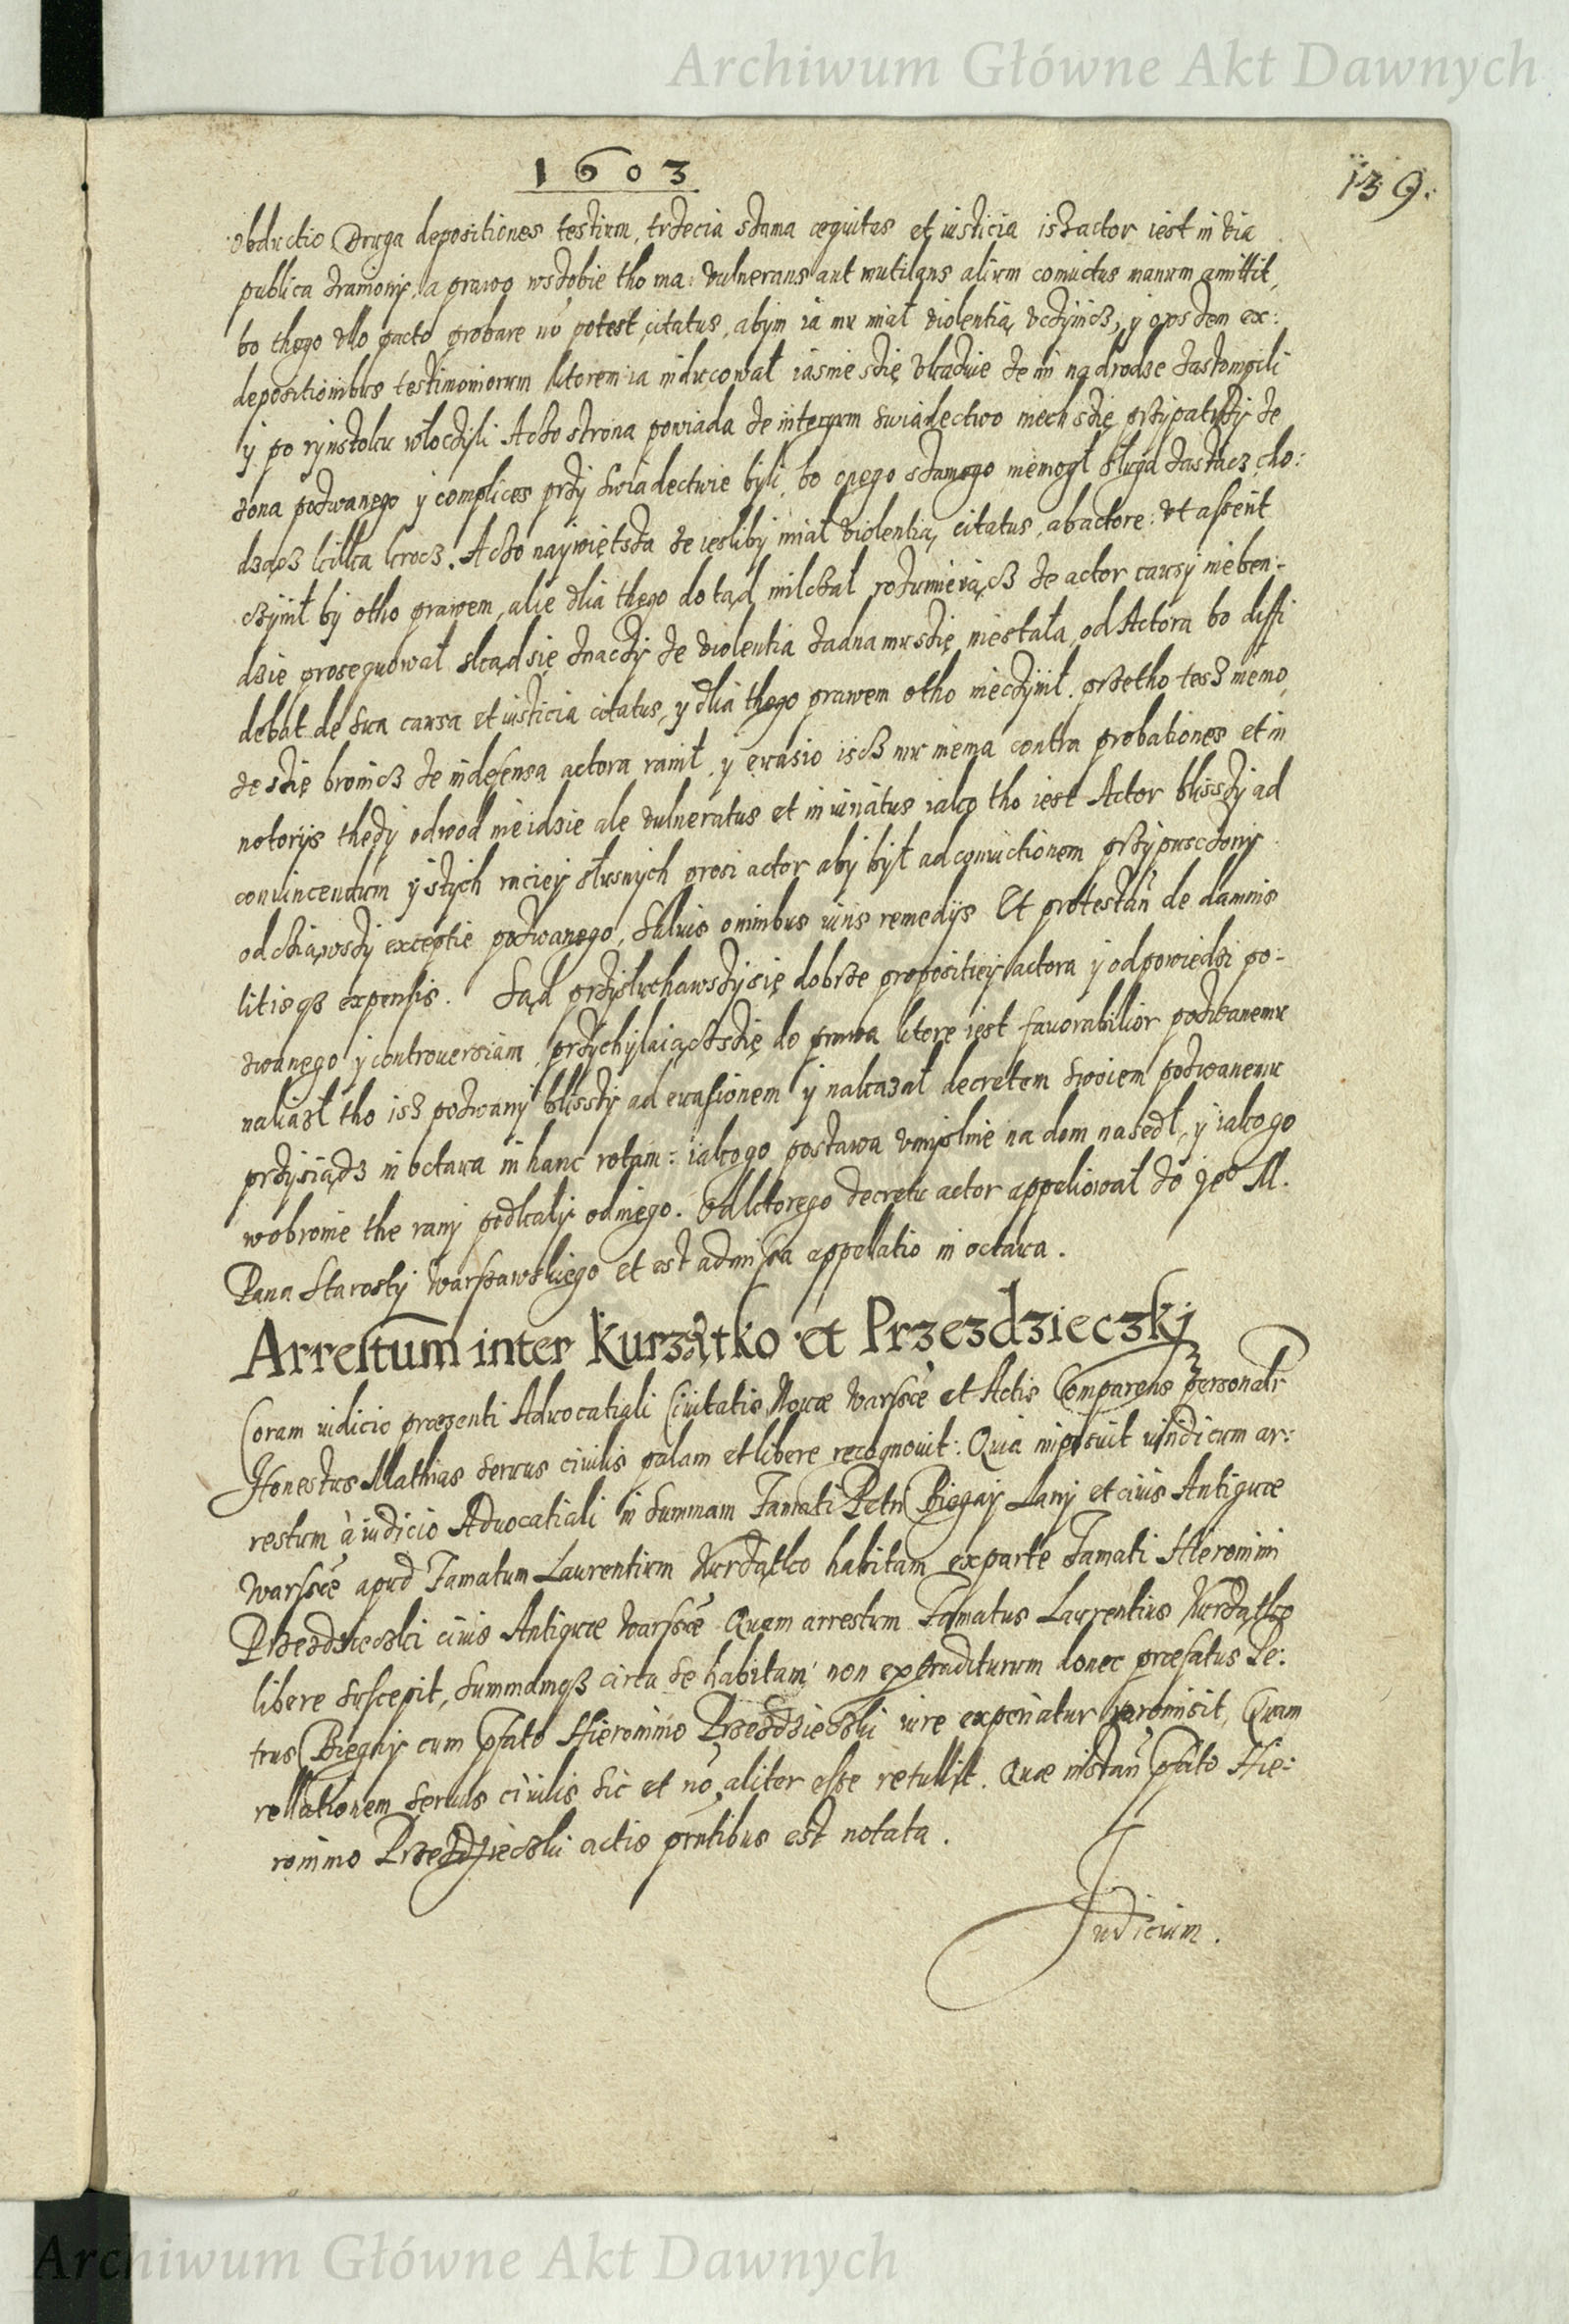 Archiwum Główne Akt Dawnych
1603
139.
obductio Druga depositiones testium, trzecia sama æquitas et iusticia isz actor iest in via
publica zraniony, a prawo wsobie tho ma: vulnerans aut mutilans alium conuictus manum amittit,
bo thego vllo pacto probare nō potest citatus, abym ia mu miał violentią vczynicz, y owszem ex:
depositionibus testimoniorum ktorem ia inducował iasnie się vkazuie ze mi na drodze zastompili
y po rynsztoku włoczyli Aczo strona powiada ze inter̄um swiadectwo niech się przypatrzy ze
zona pozwanego y complices przy swiadectwie byli, bo onego samego niemogł sługa zastacz cho:
dzącz kilka krocz. Aczo naywiętsza ze iesliby miał violentią citatus, ab actore: vt asserit
czynił by otho prawem, alie dlia thego do tąd milczał rozumieiącz ze actor causy nieben:
dzie prosequował skąd się znaczy ze violentia zadna mu się niestała, od Actora bo diffi
debat de sua causa et iusticia citatus, y dlia thego prawem otho nieczynił. przetho tesz niemo,
ze się bronicz ze indefensa actora ranił, y euasio iscz mu niema contra probationes et in
notorys thedy odwod nieidzie ale vulneratus et iniuriatus iako tho iest Actor blisszy ad
conuincendum y stych raciey słusnych prosi actor aby był ad conuictionem przypusczony
odcziąwszy exceptie pozwanego, Saluis omnibus iuris remedys Et protestań de damnis
litisqз expensis. Sąd przysłuchawszy się dobrze propositiey actora y odpowiedzi po:
zwanego y controuersiam, przychylaiącz się do prawa ktore iest fauorabilior pozwanemu
naliazł tho isz pozwany blisszy ad euasionem y nakazał decretem swoiem pozwanemu
przysiądz in octaua in hanc rotam: iako go postawa vmyslnie na dom naszedł, y iako go
wobronie the rany podkały od niego. Od ktorego decretu actor appeliował do Jeo M.
Pana Starosty Warszawskiego et est admissa appellatio in octaua.
Arrestum inter Kurzątko et Przezdzieczkj
Coram iudicio præsenti Aduocatiali Ciuitatis Nouæ Warssæ et Actis Comparens personalr
Honestus Mathias seruus ciuilis palam et libere recognouit: Quia imposuit iuridicum ar:
restum à iudicio Aduocatiali in summam Famati Petri Biegay Lanij et ciuis Antiquæ
Warssæ apud Famatum Laurentium Kurzątko habitam ex parte Famati Hieronimi
Przezdzieczki ciuis Antiquæ Warssæ Quem arrestum Famatus Laurentius Kurzątko
libere suscepit, summamqз circa se habitam non extraditurum donec præfatus Pe:
trus Biegay cum pfato Hieronimo Przezdzieczki iure experiatur promisit, Quam
rellationem seruus ciuilis sic et nō aliter esse retullit. Quæ instań pfato Hie:
ronimo Przezdzieczki actis pntibus est notata.
Judicium.
Archiwum Główne Akt Dawnych